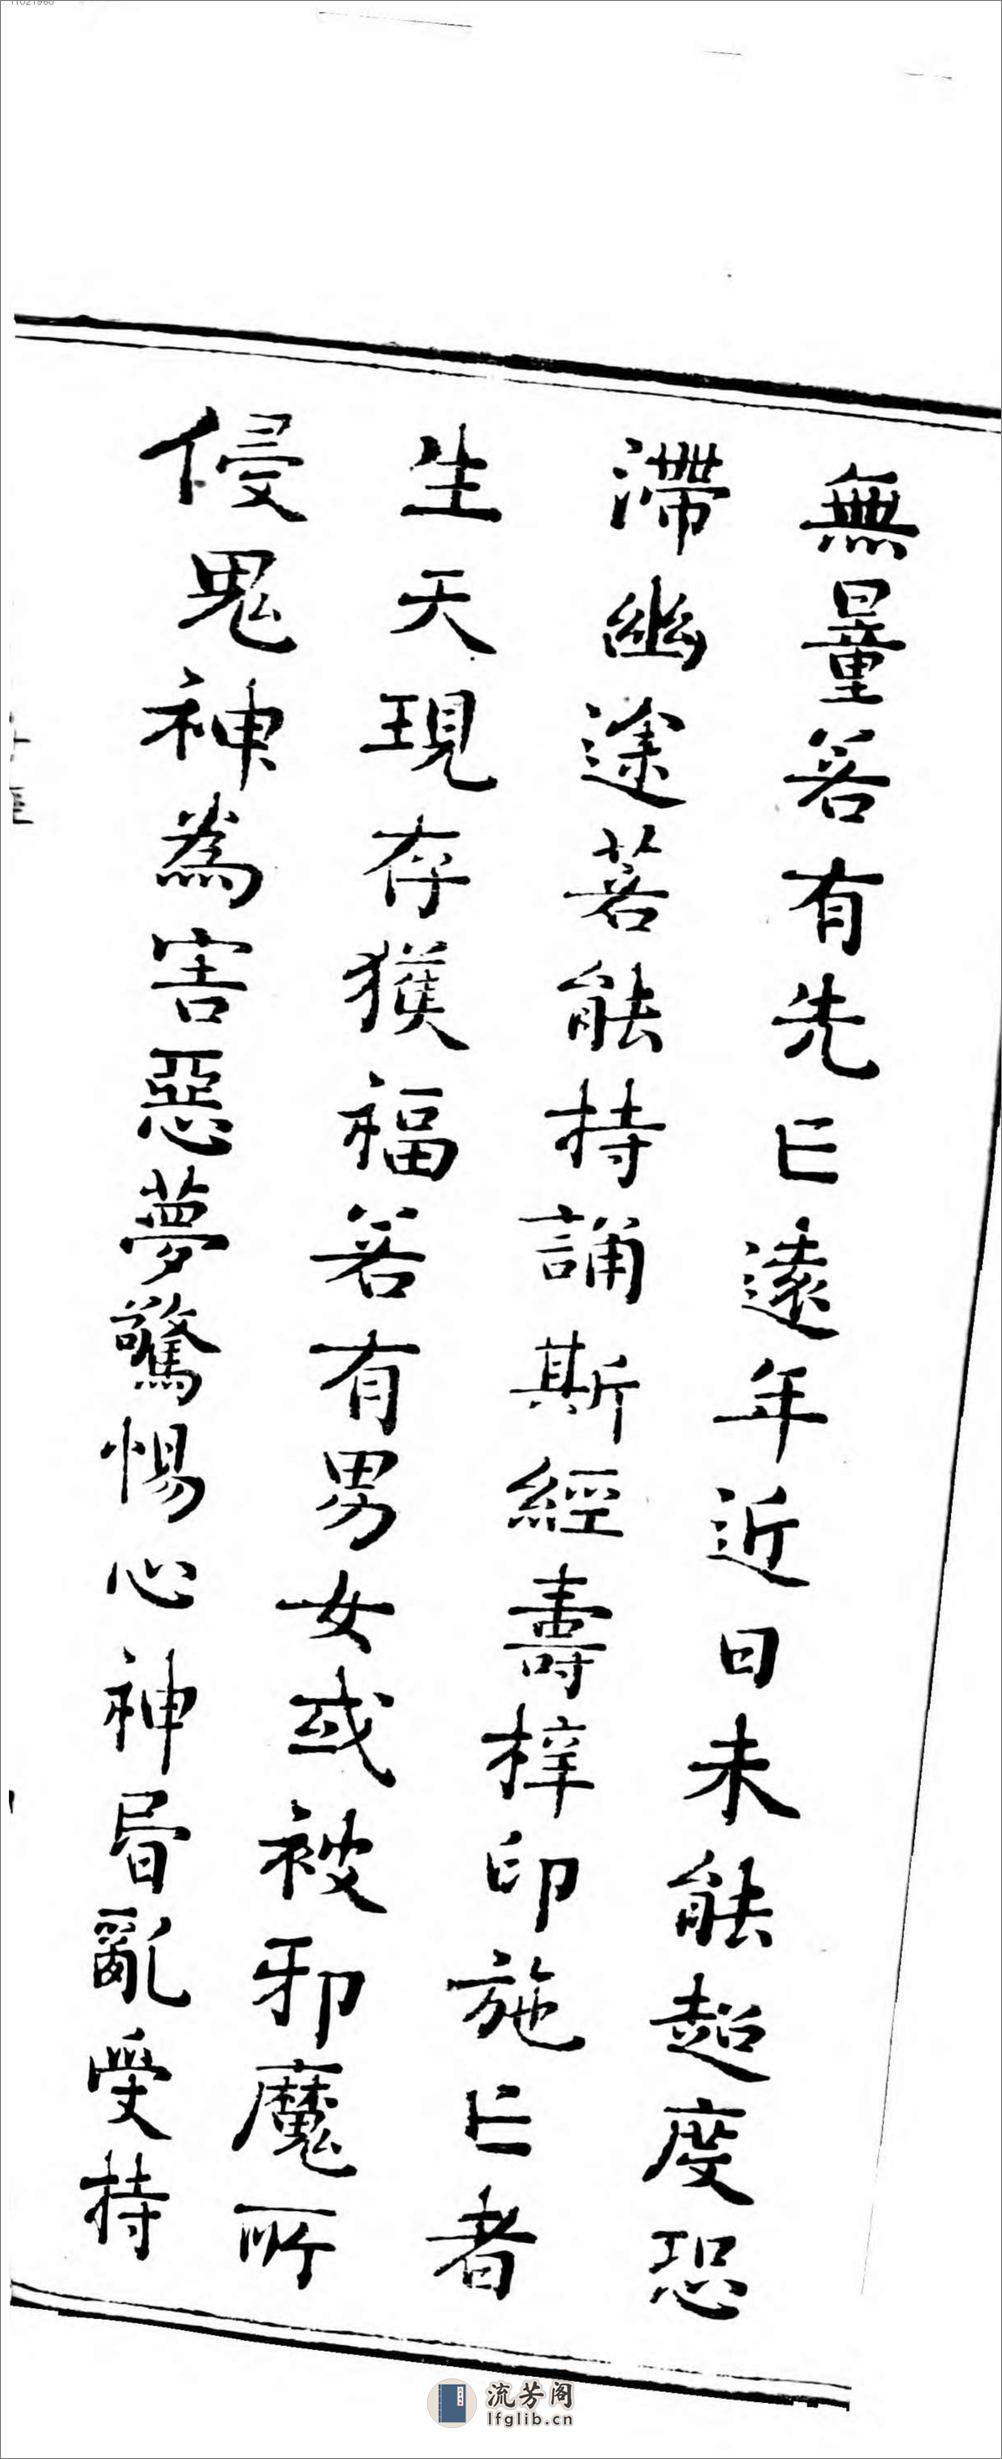 無量若有先亡遠年近日未能超度恐
滯幽途若能持誦斯經壽梓印施亡者
生天現存獲福若有男女或被邪魔所
侵鬼神為害惡夢驚惕心神昏亂受持
流芳阁
lfglib.cn